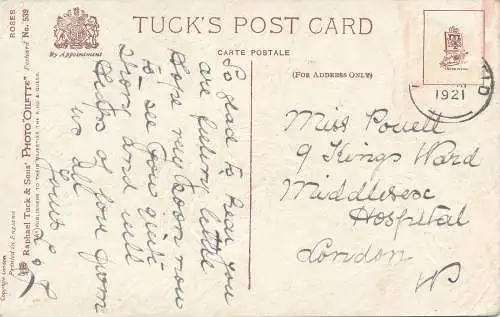 TUCK'S POST CARD
CARTE POSTALE
(FOR ADDRESS ONLY)
By Appointment
1921
ROSES
Postcard No. 539
Raphael Tuck & Sons' PHOTO "OILETTE"
ART PUBLISHERS TO THEIR MAJESTIES THE KING & QUEEN.
Printed in England
Copyright London
So glad to hear you
are feeling little
Hope
to see you quite
strong and well
Heaps of love from
us all
Miss Powell
9 Kings Ward
Middlesex
Hospital
London
W